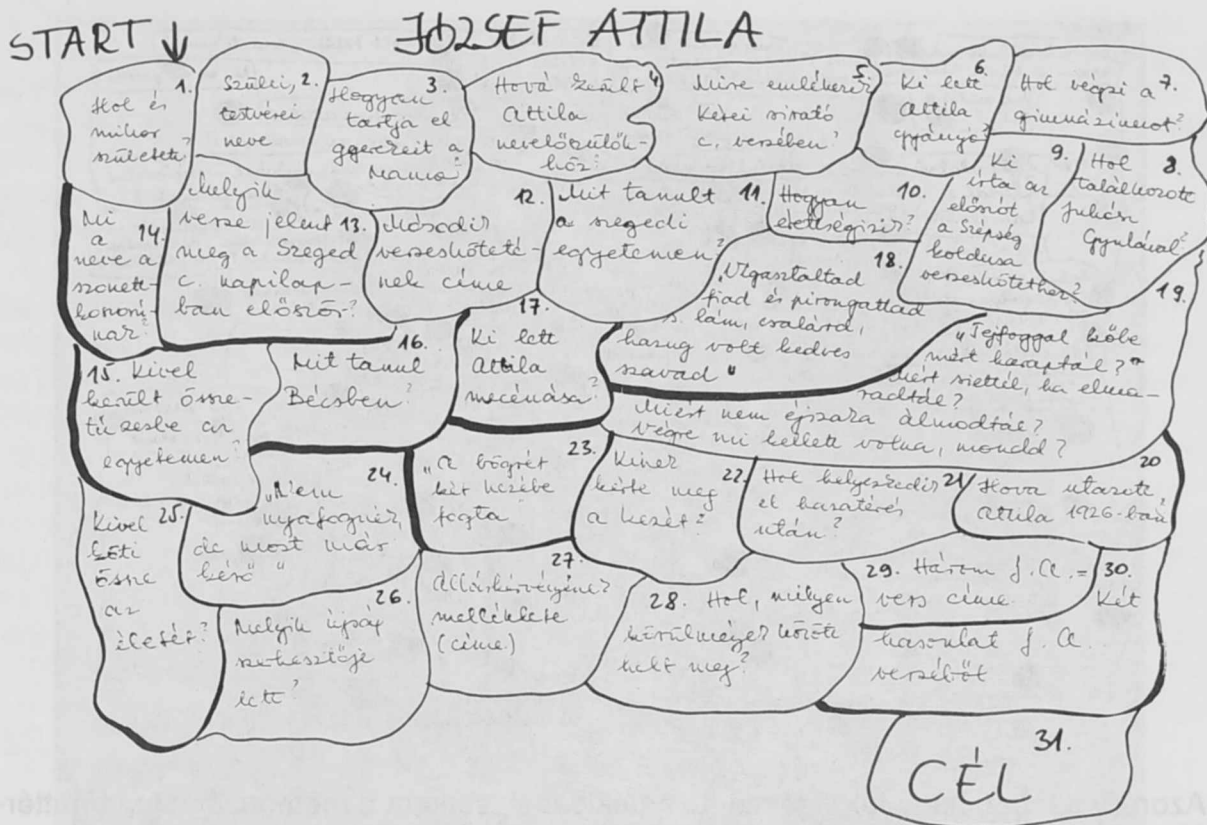 START
JÓZSEF ATTILA
1.
Hol és
mikor
született?
Szülei, 2.
testvérei
neve
3.
Hogyan
tartja el
gyerekeit a
Mama?
4.
Hová került
Attila
nevelőszülők-
höz?
5.
Mire emlékezik
Kései sirató
c. versében?
6.
Ki lett
Attila
gyámja?
7.
Hol végzi a
gimnáziumot?
8.
Hol
találkozott
Juhász
Gyulával?
9.
Ki
írta az
előszót
a Szépség
koldusa
verseskötethez?
10.
Hogyan
érettségizik?
11.
Mit tanult
a szegedi
egyetemen?
12.
Második
versesköteté-
nek címe
Melyik
verse jelent 13.
meg a Szeged
c. napilap-
ban először?
Mi
a 14.
neve a
szonett-
koszorú-
nak?
15. Kivel
került össze-
tűzésbe az
egyetemen?
16.
Mit tanul
Bécsben?
17.
Ki lett
Attila
mecénása?
18.
„Vigasztaltad
fiad és pirongattad
s lám, csalárd,
hazug volt kedves
szavad "
19.
„Tejfoggal kőbe
mért haraptál?"
Mért siettél, ha elma-
radtál?
Miért nem éjszaka álmodtál?
Végre mi kellett volna, mondd?
20
Hova utazott
Attila 1926-ban?
21
Hol helyezkedik
el hazatérés
után?
22.
Kinek
kérte meg
a kezét?
23.
„A bögrét
két kezébe
fogta
24.
„Nem
nyafognék,
de most már
késő "
25.
Kivel
köti
össze
az
életét?
26.
Melyik újság
szerkesztője
lett?
27.
Álláskérvényének
melléklete
(címe.)
28. Hol, milyen
körülmények között
halt meg?
29. Három J. A. -
vers címe
30.
Két
hasonlat J. A.
verséből
31.
CÉL